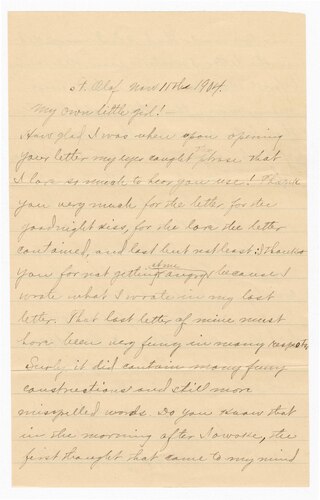 St. Olaf Nov 11th 1904.
My own little girl!—
How glad I was when upon opening
your letter my eyes caught phrase that
I love so much to hear you use! Thank
you very much for the letter for the
goodnight kiss, for the love the letter
contained, and last but not least: Thanks
you for not getting angry because I
wrote what I wrote in my last
letter. That last letter of mine must
have been very funny in many respects,
Surely it did contain many funny
constructions and still more
misspelled words. Do you know that
in the morning after I awoke, the
first thought that came to my mind